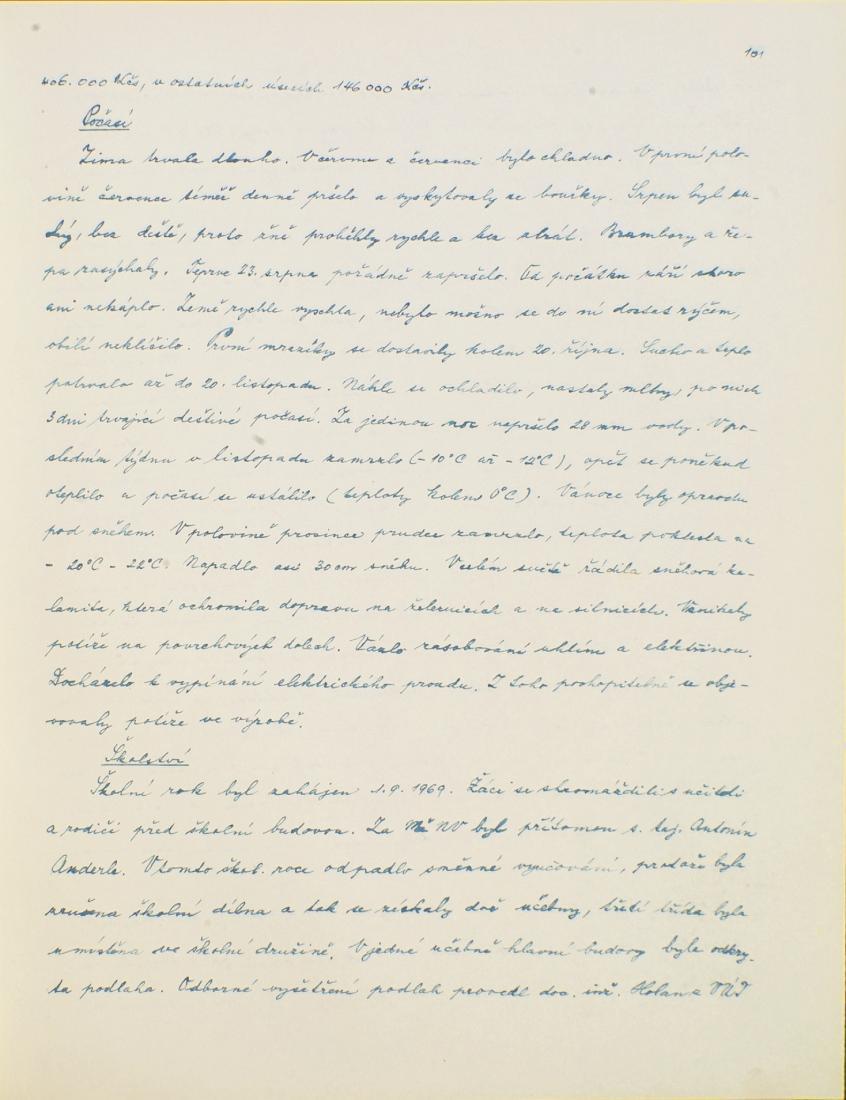 101
406.000 Kčs, v ostatních úsecích 146 000 Kčs.
Počasí
Zima trvala dlouho. V červnu a červenci bylo chladno. V první polo-
vině července téměř denně pršelo a vyskytovaly se bouřky. Srpen byl su-
chý, bez deště, proto žně proběhly rychle a bez ztrát. Brambory a ře-
pa zasýchaly. Teprve 23. srpna pořádně zapršelo. Od počátku září skoro
ani nekáplo. Země rychle vyschla, nebylo možno se do ní dostat rýčem,
obilí neklíčilo. První mrazíky se dostavily kolem 20. října. Sucho a teplo
potrvalo až do 20. listopadu. Náhle se ochladilo, nastaly mlhy, po nich
3 dni trvající deštivé počasí. Za jedinou noc napršelo 28 mm vody. V po-
sledním týdnu v listopadu zamrzlo (- 10°C až - 12°C), opět se poněkud
oteplilo a počasí se ustálilo (teploty kolem 0°C). Vánoce byly opravdu
pod sněhem. V polovině prosince prudce zamrzlo, teplota poklesla na
- 20°C - 22°C. Napadlo asi 30 cm sněhu. V celém světě řádila sněhová ka-
lamita, která ochromila dopravu na železnicích a na silnicích. Vznikaly
potíže na povrchových dolech. Vázlo zásobování uhlím a elektřinou.
Docházelo k vypínání elektrického proudu. Z toho pochopitelně se obje-
vovaly potíže ve výrobě.
Školství
Školní rok byl zahájen 1.9. 1969. Žáci se shromáždili s učiteli
a rodiči před školní budovou. Za MěNV byl přítomen s. taj. Antonín
Anderle. V tomto škol. roce odpadlo směnné vyučování, protože byla
zrušena školní dílna a tak se získaly dvě učebny, třetí třída byla
umístěna ve školní družině. V jedné učebně hlavní budovy byla odkry-
ta podlaha. Odborné vyšetření podlah provedl doc. inž. Holan z